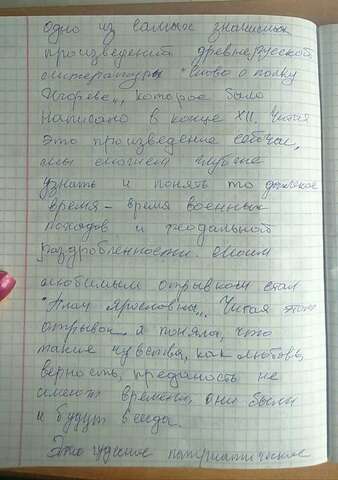 одно из самых значимых
произведений древнерусской
литературы "Слово о полку
Игореве", которое было
написано в конце XII. Читая
это произведение сейчас,
мы сможем глубже
узнать и понять то далекое
время – время военных
походов и феодальной
раздробленности. Моим
любимым отрывком стал
"Плач Ярославны". Читая этот
отрывок я поняла, что
такие чувства, как любовь,
верность, преданость не
имеют времени, они были
и будут всегда.
Это чудесное патриатическое